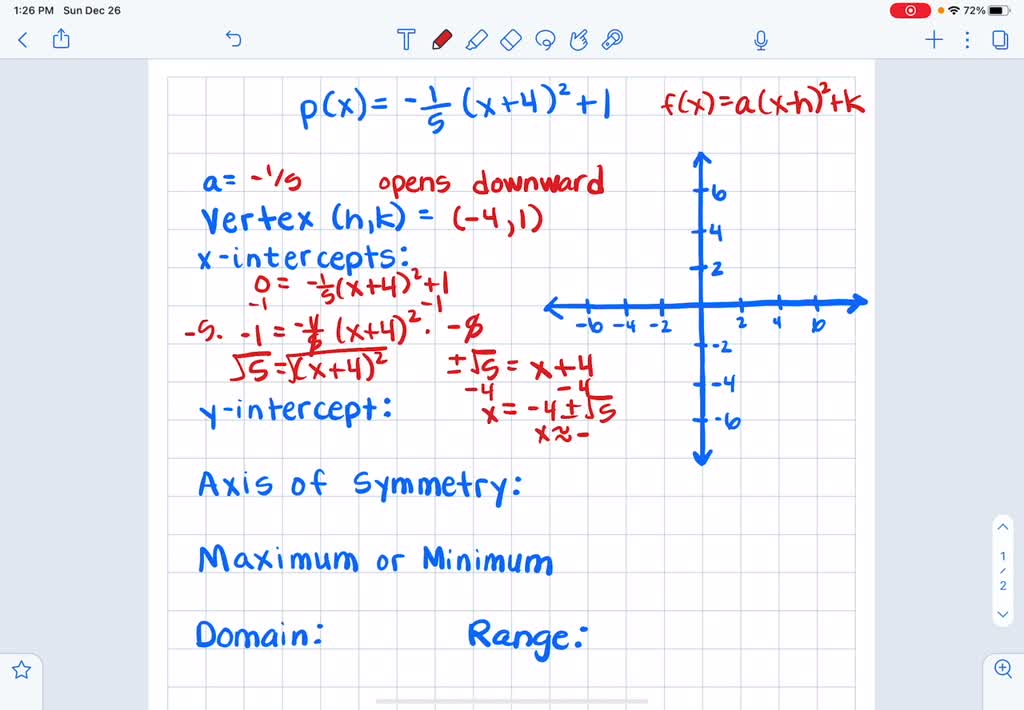 1:26 PM Sun Dec 26
72%
T
p(x) = -1/5 (x+4)² + 1
f(x) = a(x-h)² + k
a = -1/5 opens downward
Vertex (h,k) = (-4,1)
x-intercepts:
0 = -1/5(x+4)² + 1
-1 -1
-5 · -1 = -1/5 (x+4)² · -5
√5 = √(x+4)²
±√5 = x+4
-4 -4
x = -4 ± √5
x ≈ -
y-intercept:
Axis of Symmetry:
Maximum or Minimum
Domain: Range:
6
4
2
-6 -4 -2 2 4 6
-2
-4
-6
1
/
2